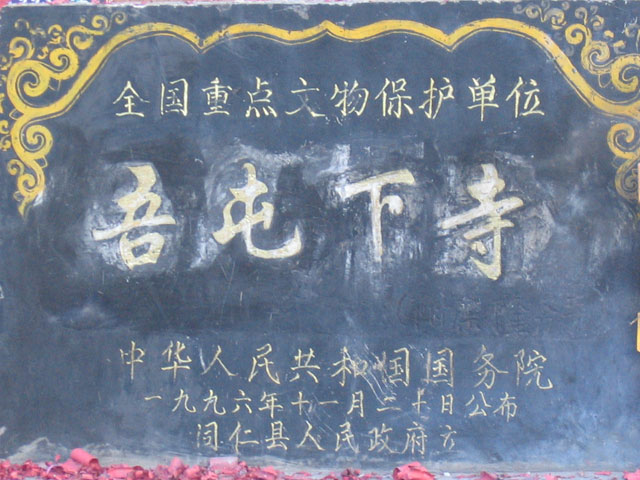 全国重点文物保护单位
吾屯下寺
中华人民共和国国务院
一九九六年十一月二十日公布
同仁县人民政府立